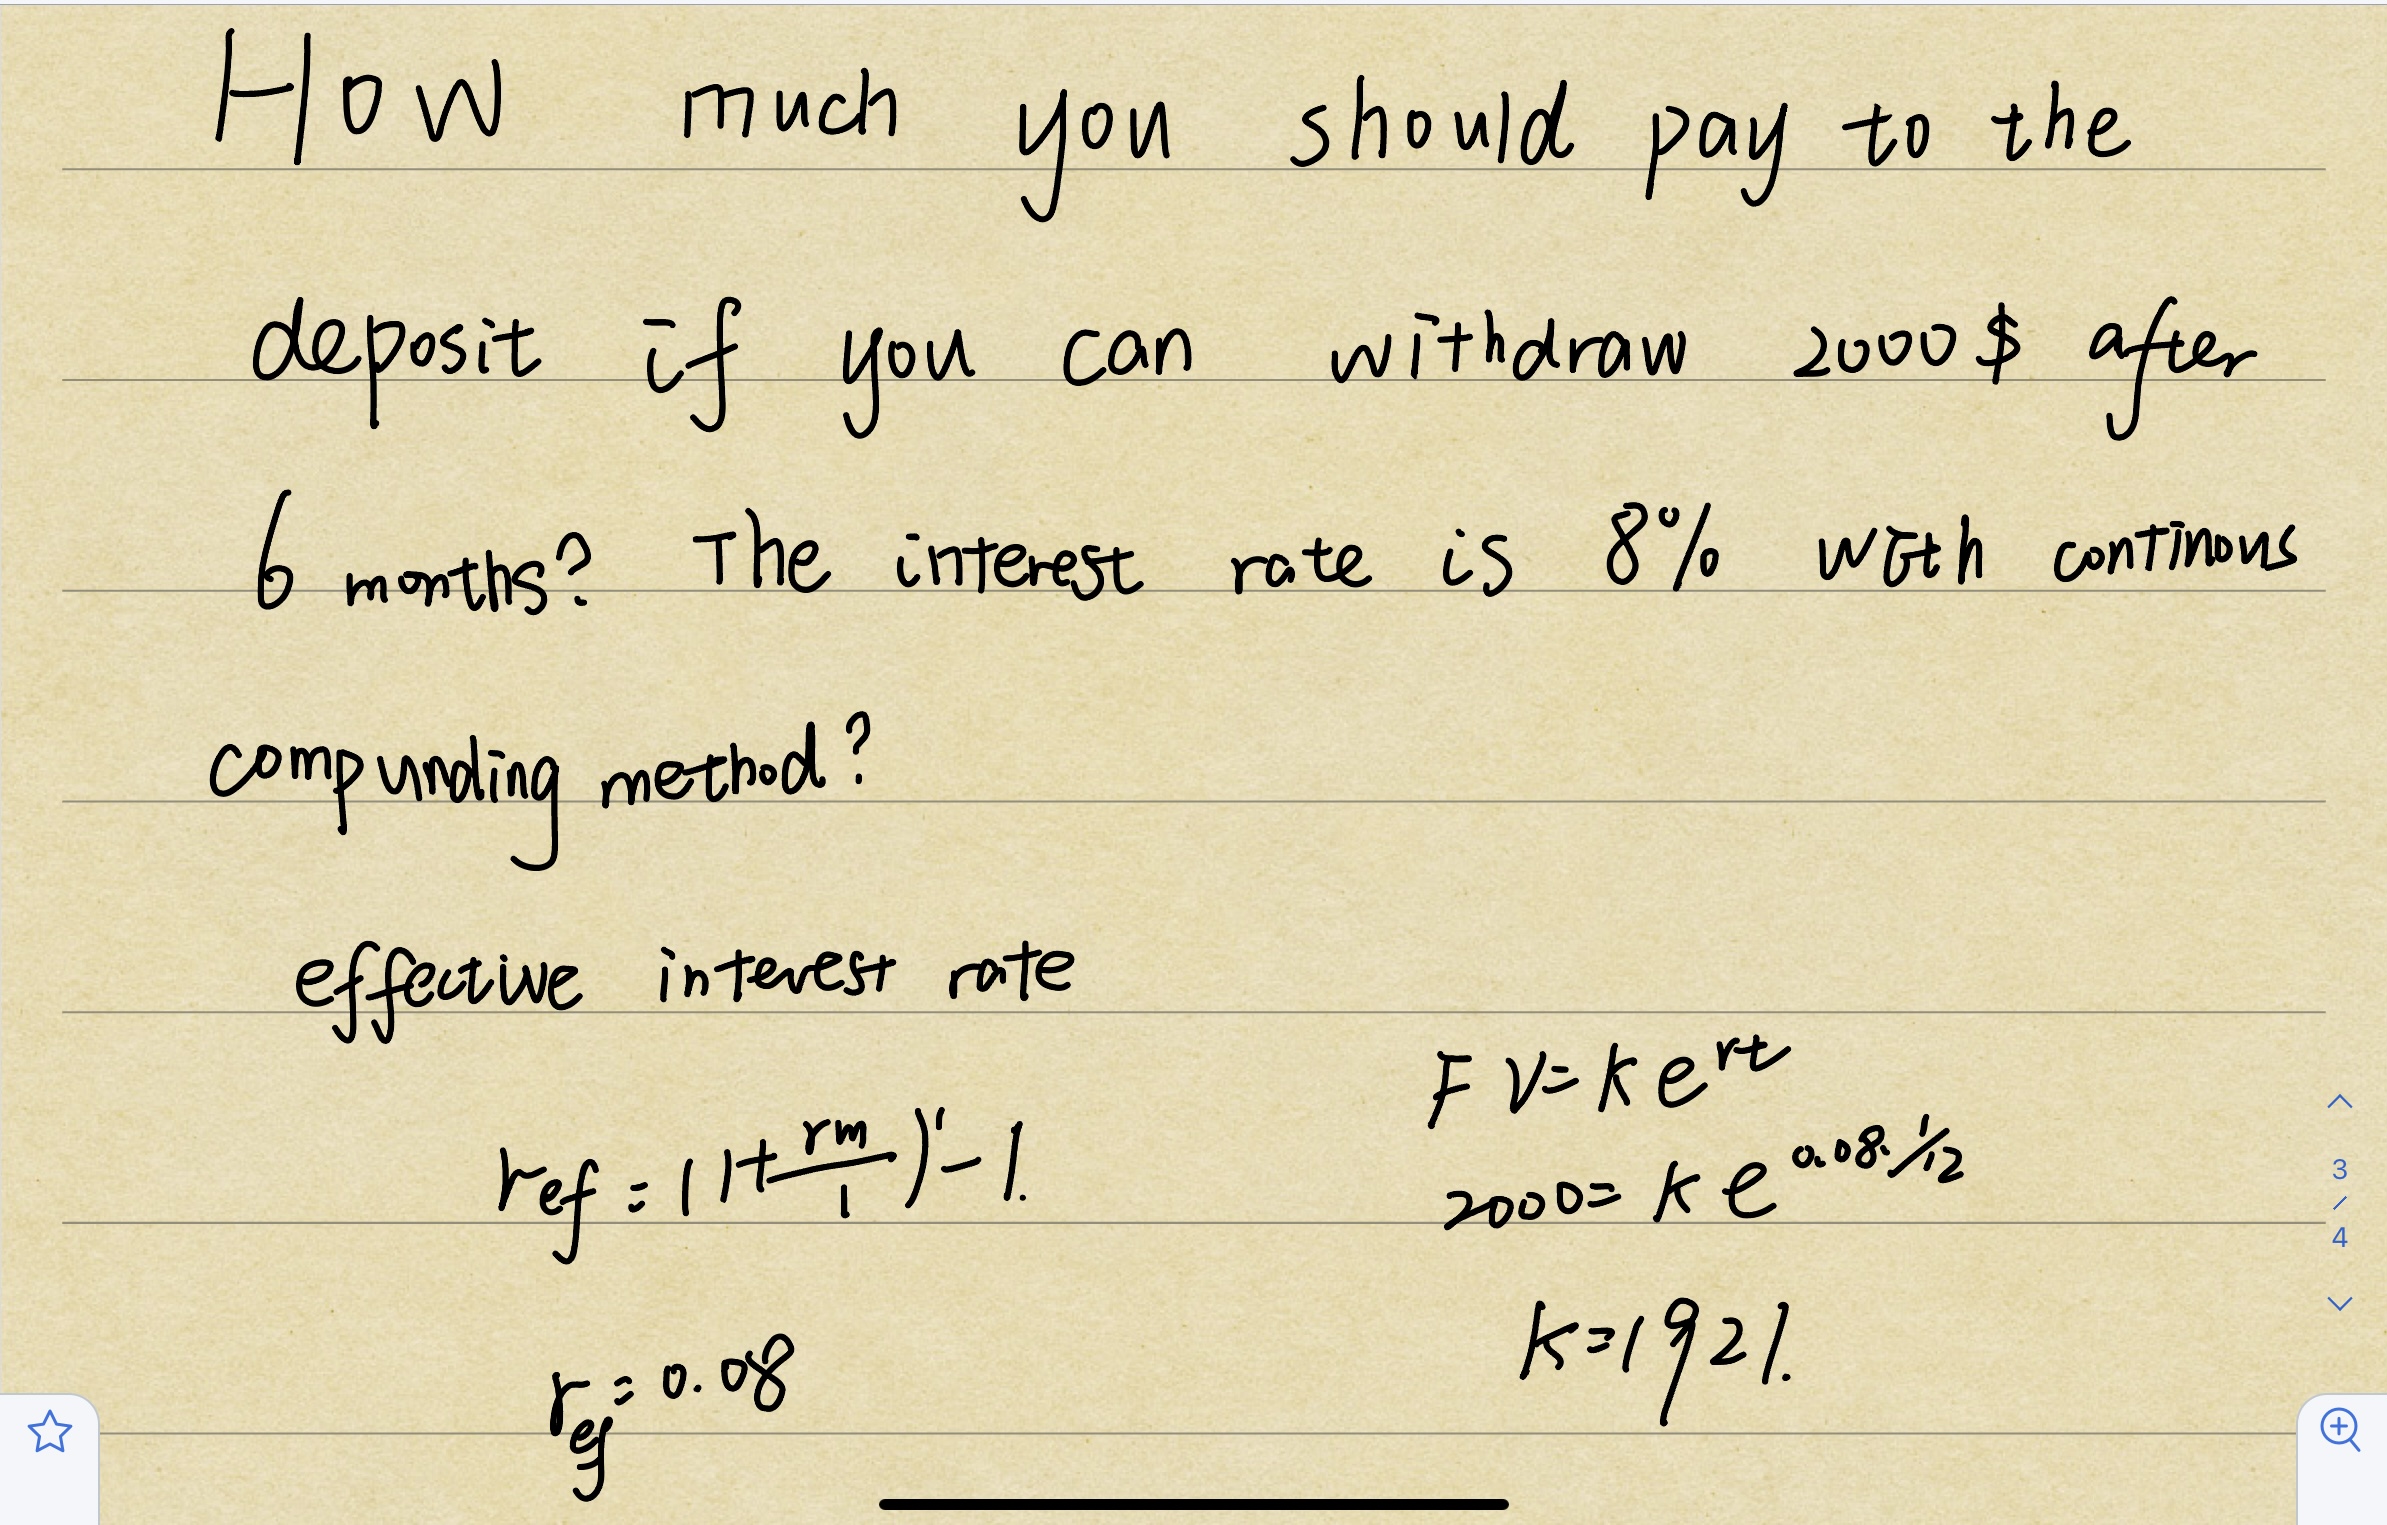 How much you should pay to the
deposit if you can withdraw 2000$ after
6 months? The interest rate is 8% with continous
compunding method?
effective interest rate
r_ef = (1+rm/1)^1-1.
r_ef = 0.08
FV=Ke^rt
2000=Ke^0.08·1/12
K=1921.
3
/
4